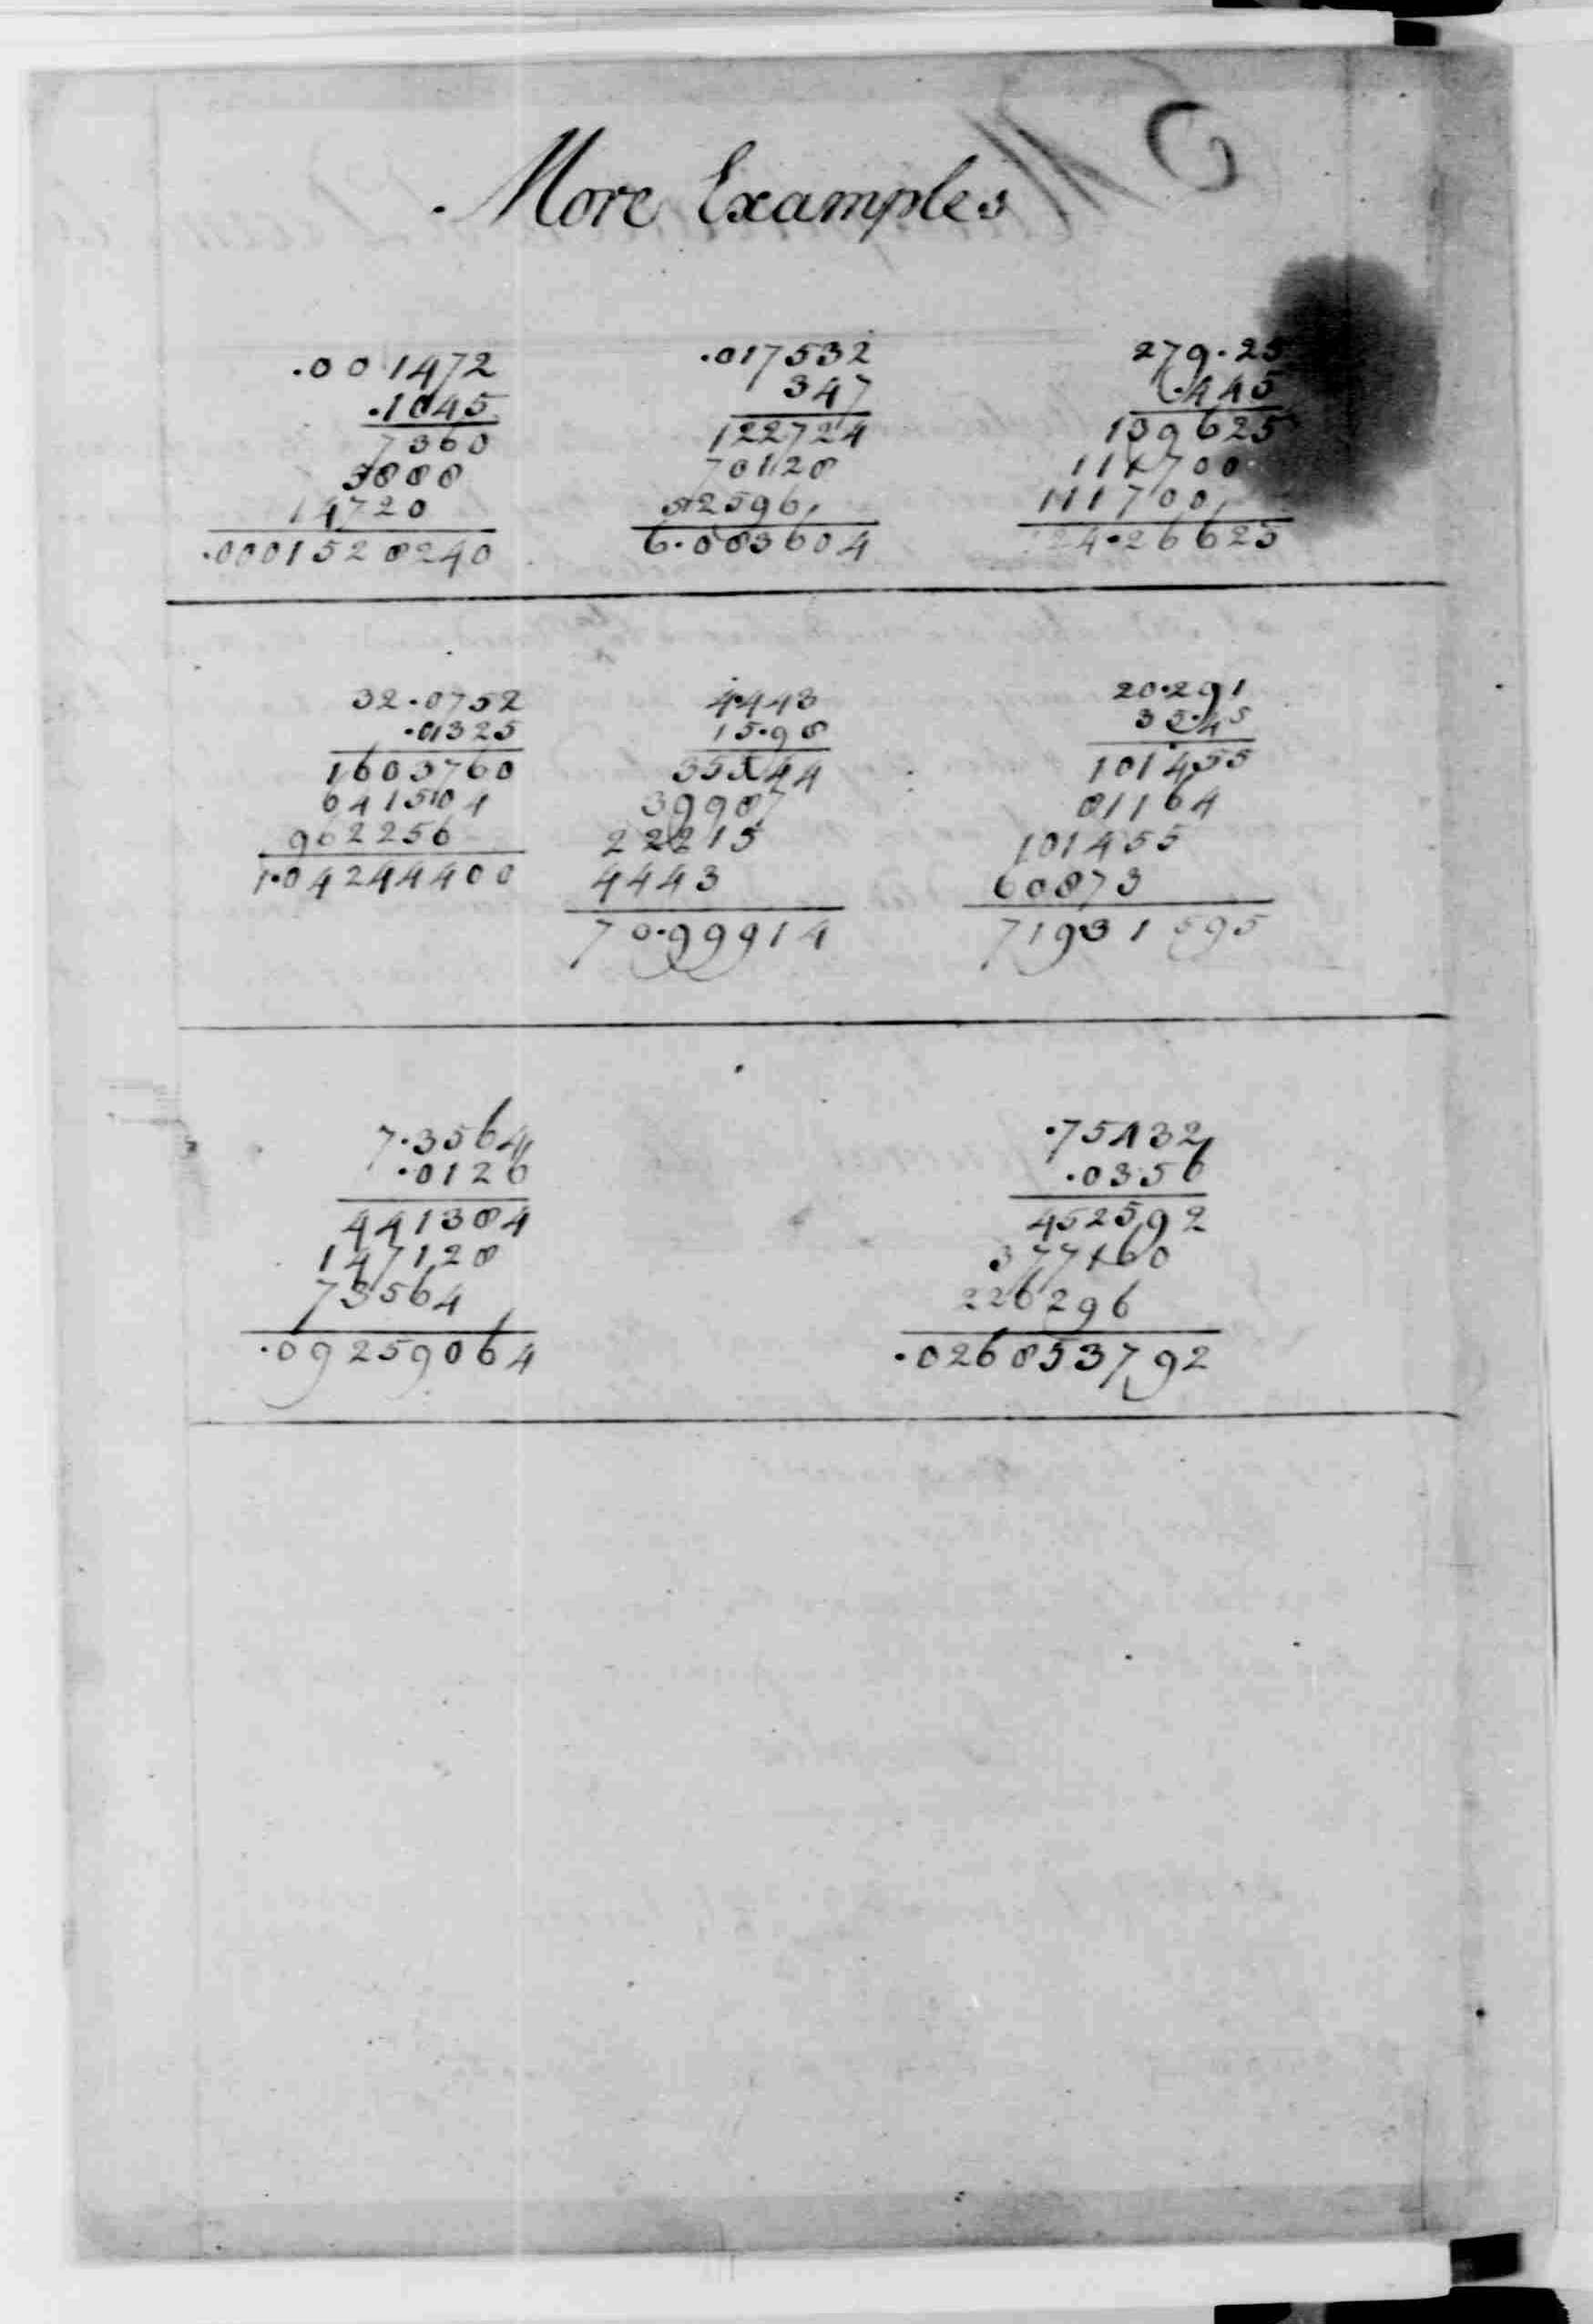 More Examples
.001472
.1045
7360
5888
14720
.0001528240
.017532
347
122724
70128
52596
6.083604
279.25
.445
139625
111700
111700
124.26625
32.0752
.01325
1603760
641504
962256
1.04244400
4.443
15.98
35544
39987
22215
4443
70.99914
20.291
35.45
101455
81164
101455
60873
719.31595
7.3564
.0126
441384
147128
73564
.09259064
.75432
.0356
452592
377160
226296
.026853792